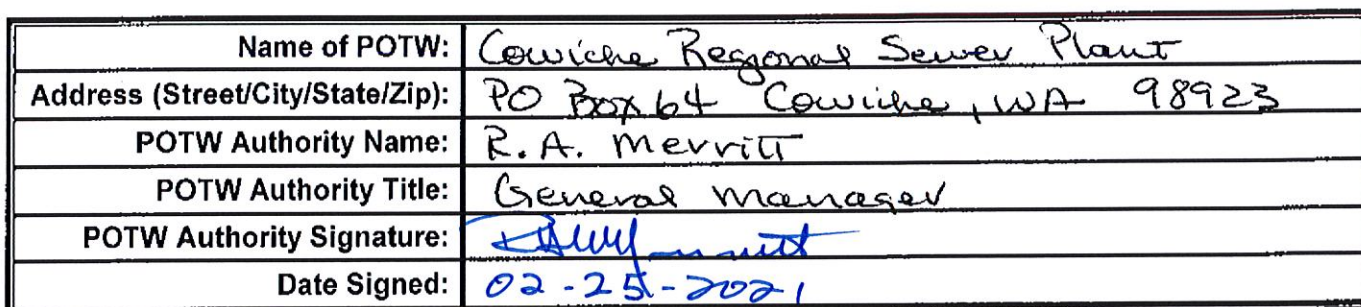 Name of POTW: Cowiche Regional Sewer Plant
Address (Street/City/State/Zip): PO Box 64 Cowiche, WA 98923
POTW Authority Name: R. A. Merritt
POTW Authority Title: General Manager
POTW Authority Signature: RAMerritt
Date Signed: 02-25-2021